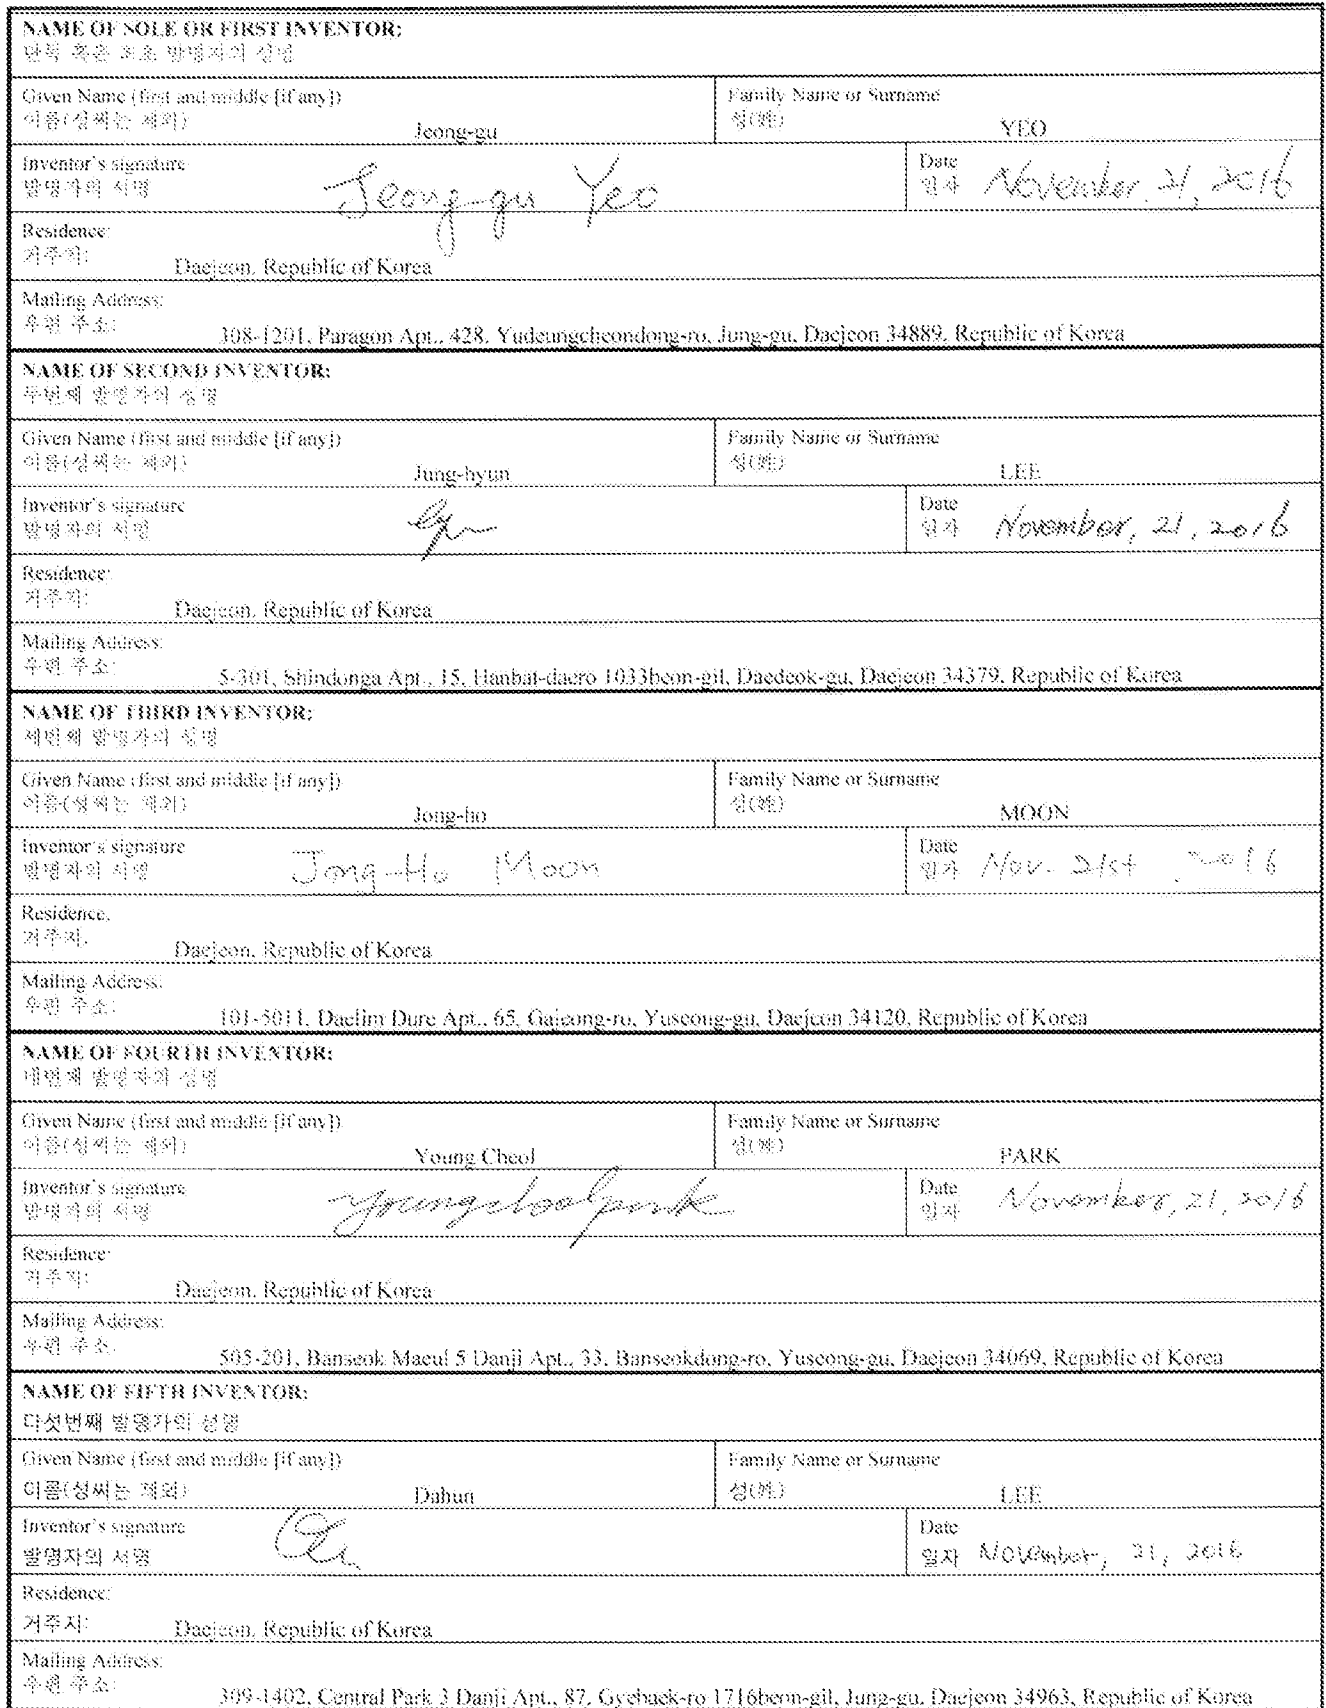 NAME OF SOLE OR FIRST INVENTOR:
단독 혹은 최초 발명자의 성명
Given Name (first and middle [if any])
Family Name or Surname
이름(성씨는 제외)
Jeong-gu
성(姓)
YEO
Inventor's signature
Date
발명자의 서명
Jeong-gu Yeo
일자
November. 21, 2016
Residence:
거주지:
Daejeon, Republic of Korea
Mailing Address:
우편 주소:
308-1201, Paragon Apt., 428, Yudeungcheondong-ro, Jung-gu, Daejeon 34889, Republic of Korea
NAME OF SECOND INVENTOR:
두번째 발명자의 성명
Given Name (first and middle [if any])
Family Name or Surname
이름(성씨는 제외)
Jung-hyun
성(姓)
LEE
Inventor's signature
Date
발명자의 서명
일자
November, 21, 2016
Residence:
거주지:
Daejeon, Republic of Korea
Mailing Address:
우편 주소:
5-301, Shindonga Apt., 15, Hanbat-daero 1033beon-gil, Daedeok-gu, Daejeon 34379, Republic of Korea
NAME OF THIRD INVENTOR:
세번째 발명자의 성명
Given Name (first and middle [if any])
Family Name or Surname
이름(성씨는 제외)
Jong-ho
성(姓)
MOON
Inventor's signature
Date
발명자의 서명
Jong-Ho Moon
일자
Nov. 21st, 2016
Residence:
거주지:
Daejeon, Republic of Korea
Mailing Address:
우편 주소:
101-5011, Daelim Dure Apt., 65, Gajeong-ro, Yuseong-gu, Daejeon 34120, Republic of Korea
NAME OF FOURTH INVENTOR:
네번째 발명자의 성명
Given Name (first and middle [if any])
Family Name or Surname
이름(성씨는 제외)
Young Cheol
성(姓)
PARK
Inventor's signature
Date
발명자의 서명
youngcheolpark
일자
November, 21, 2016
Residence:
거주지:
Daejeon, Republic of Korea
Mailing Address:
우편 주소:
505-201, Banseok Maeul 5 Danji Apt., 33, Banseokdong-ro, Yuseong-gu, Daejeon 34069, Republic of Korea
NAME OF FIFTH INVENTOR:
다섯번째 발명자의 성명
Given Name (first and middle [if any])
Family Name or Surname
이름(성씨는 제외)
Dahun
성(姓)
LEE
Inventor's signature
Date
발명자의 서명
일자
November, 21, 2016
Residence:
거주지:
Daejeon, Republic of Korea
Mailing Address:
우편 주소:
309-1402, Central Park 3 Danji Apt., 87, Gyebaek-ro 1716beon-gil, Jung-gu, Daejeon 34963, Republic of Korea